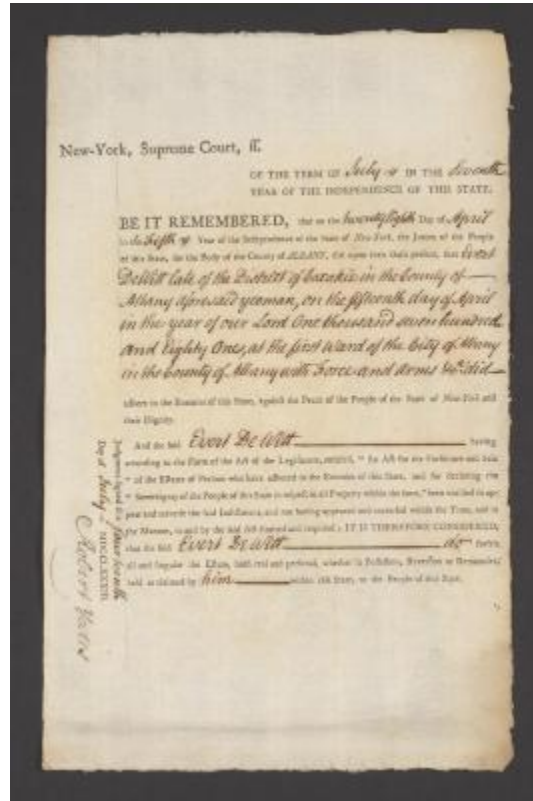 New-York, Supreme Court, ss.
OF THE TERM OF July IN THE Seventh
YEAR OF THE INDEPENDENCE OF THIS STATE.
BE IT REMEMBERED, that on the twenty Eighth Day of April
in the fifth Year of the Independence of the State of New-York, the Jurors of the People
of this State, for the Body of the County of ALBANY, did upon their Oath present, that Evert
DeWitt late of the District of Coxakie in the County of
Albany aforesaid yeoman, on the fifteenth day of April
in the year of our Lord One thousand seven hundred
and Eighty One, at the first Ward of the City of Albany
in the County of Albany with Force and Arms &c. did
adhere to the Enemies of this State, against the Peace of the People of the State of New-York and
their Dignity.
And the said Evert De Witt having
according to the Form of the Act of the Legislature, entitled, " An Act for the Forfeiture and Sale
" of the Estates of Persons who have adhered to the Enemies of this State, and for declaring the
" Sovereignty of the People of this State in respect to all Property within the same," been notified to appear
and traverse the said Indictment, and not having appeared and traversed within the Time, and in
the Manner, in and by the said Act limited and required ; IT IS THEREFORE CONSIDERED,
that the said Evert De Witt do forfeit
all and singular the Estate, both real and personal, whether in Possession, Reversion or Remainder,
held or claimed by him within this State, to the People of this State.
Judgment signed this
Day of July MDCCLXXXII.
Robert Yates